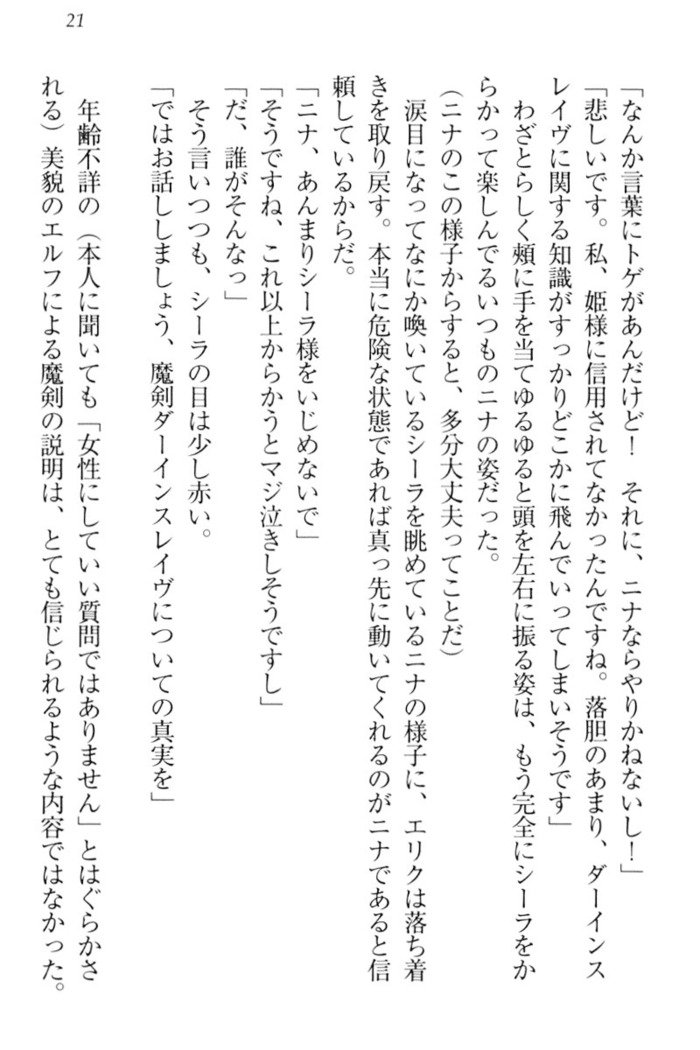 21
「なんか言葉にトゲがあんだけど！　それに、ニナならやりかねないし！」
「悲しいです。私、姫様に信用されてなかったんですね。落胆のあまり、ダーインス
レイヴに関する知識がすっかりどこかに飛んでいってしまいそうです」
　わざとらしく頰に手を当てゆるゆると頭を左右に振る姿は、もう完全にシーラをか
らかって楽しんでるいつものニナの姿だった。
（ニナのこの様子からすると、多分大丈夫ってことだ）
　涙目になってなにか喚いているシーラを眺めているニナの様子に、エリクは落ち着
きを取り戻す。本当に危険な状態であれば真っ先に動いてくれるのがニナであると信
頼しているからだ。
「ニナ、あんまりシーラ様をいじめないで」
「そうですね、これ以上からかうとマジ泣きしそうですし」
「だ、誰がそんなっ」
　そう言いつつも、シーラの目は少し赤い。
「ではお話ししましょう、魔剣ダーインスレイヴについての真実を」
　年齢不詳の（本人に聞いても「女性にしていい質問ではありません」とはぐらかさ
れる）美貌のエルフによる魔剣の説明は、とても信じられるような内容ではなかった。